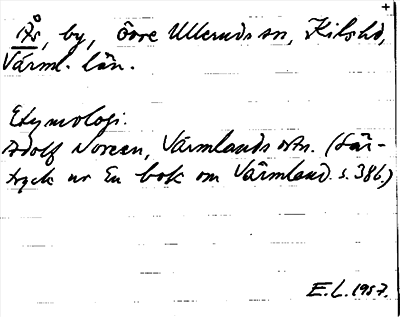 Ås, by, Övre Ulleruds sn, Kils hd,
Värml. län.
Etymologi.
Adolf Noreen, Värmlands ortn. (Sär-
tryck ur En bok om Värmland. s. 386.)
E.L. 1957.